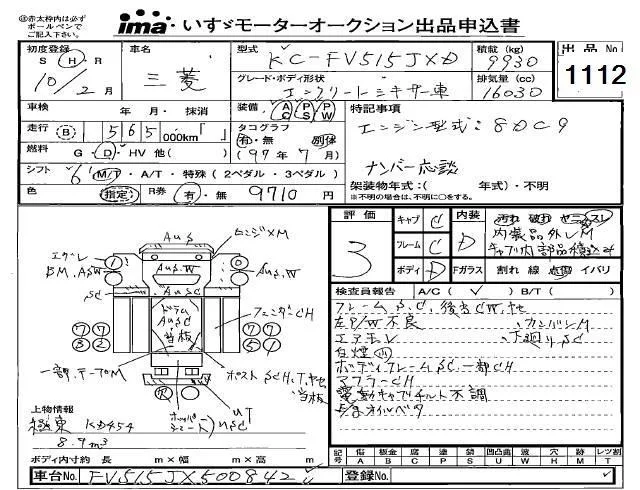 ㊟赤太枠内は必ず
ボールペンで
ご記入下さい。
ima いすゞモーターオークション出品申込書
初度登録 車名 型式 積載 (kg) 出品No
S・H・R 三菱 KC-FV515JXD 9930 1112
10/2月 グレード・ボディ形状 排気量 (cc)
コンクリートミキサー車 16030
車検 年 月・抹消 装備 AC PS PW 特記事項
走行 B 565000km「 」 タコグラフ エンジン型式:8DC9
有・無 別体
燃料 G・D・HV 他( ) (97年7月) ナンバー応談
シフト 6 M/T・A/T・特殊(2ペダル・3ペダル) 架装物年式:( 年式)・不明
色 指定 R券 有・無 9710円 ※不明の場合は、不明に○をする。
評価 キャブ C 内装 汚れ 破れ コゲ スレ
3 フレーム C D 内装品外しM
キャブ内部品積込み
ボディ D Fガラス 割れ 線 点傷 イバリ
検査員報告 A/C( ✓ ) B/T( )
フレームS,C,
左P/W不良 カンバンM
エアモレ 下廻りS,C
白煙 小
ボディフレームSC一部CH
マフラーCH
電動キャブチルト不調
エクレ ムシジ×M
BM,A&W A&S A&S,W A&W
SC A&SC フェンダーCH
ドラム
A&SC
当板
一部テープM ポストSCH,T,ヤセ
当板
ホッパ
シュート UT
上物情報
極東 KD454
8.9m³
ボディ内寸約 長 m×幅 m×高 m
記号 傷 板金 腐 塗 錆 凹凸曲 波 穴 外 レツ割
A B C P S U W H M T
車台No. FV515JX500842 登録No.